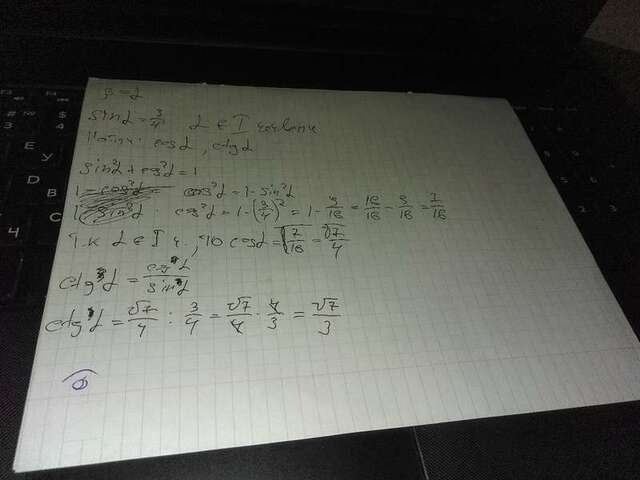 sinα = 3/4 α ∈ I четверти
Найти: cosα, ctgα
sin²α + cos²α = 1
cos²α = 1 - sin²α
cos²α = 1 - (3/4)² = 1 - 9/16 = 16/16 - 9/16 = 7/16
т.к α ∈ I ч., то cosα = √7/16 = √7/4
ctgα = cosα/sinα
ctgα = √7/4 : 3/4 = √7/4 · 4/3 = √7/3